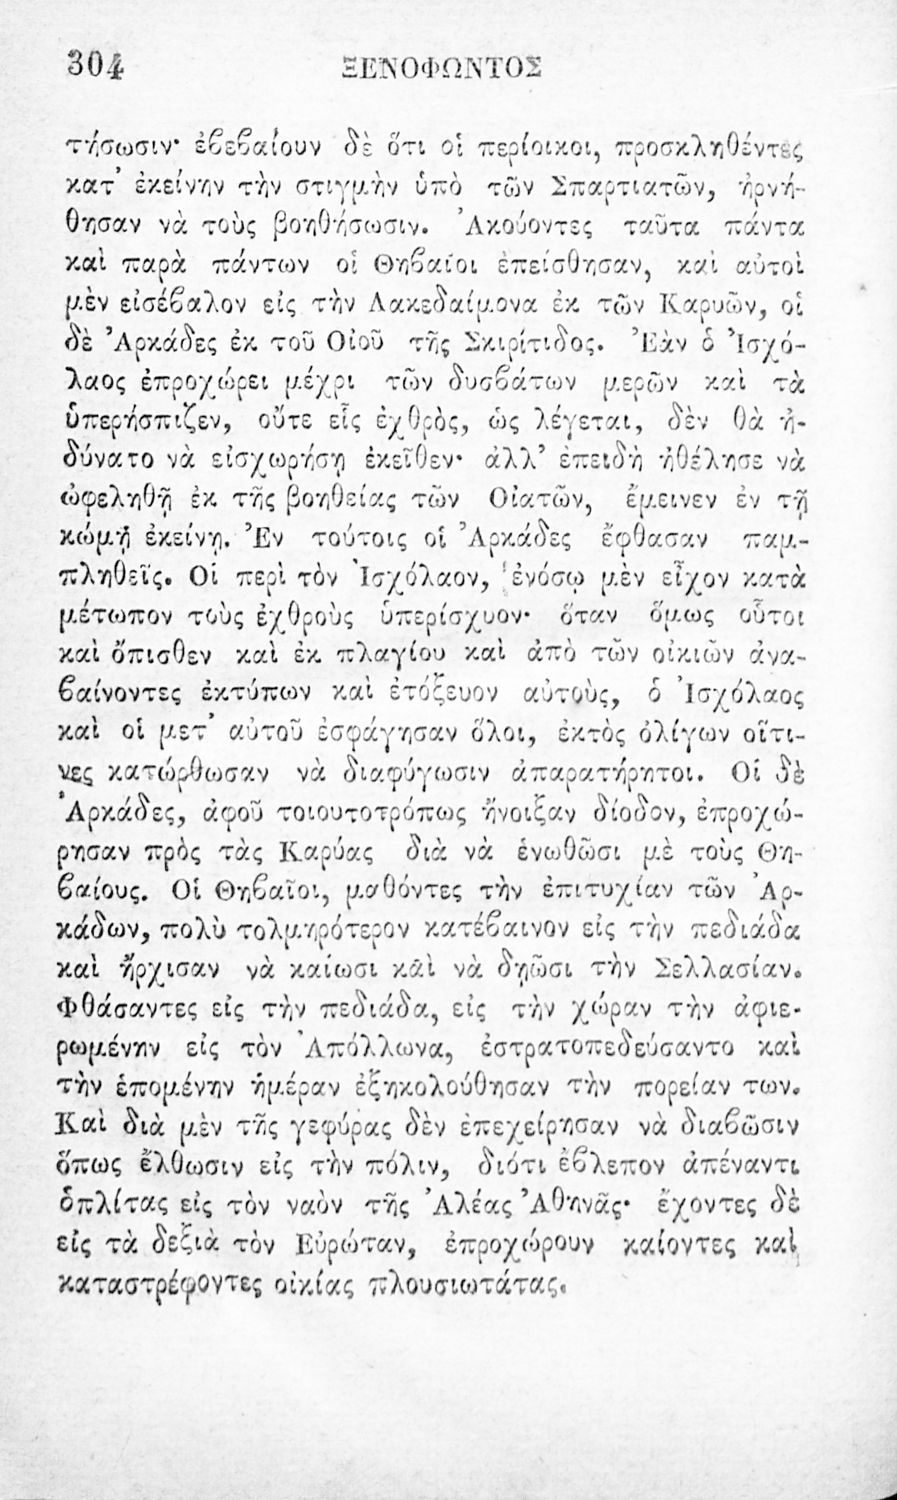 304 ΞΕΝΟΦΩΝΤΟΣ
τήσωσιν· ἐϐεϐαίουν δὲ ὅτι οἱ περίοικοι, προσκληθέντες
κατ᾽ ἐκείνην τὴν στιγμὴν ὑπὸ τῶν Σπαρτιατῶν, ἠρνή-
θησαν νὰ τοὺς βοηθήσωσιν. Ἀκούοντες ταῦτα πάντα
καὶ παρὰ πάντων οἱ Θηϐαῖοι ἐπείσθησαν, καὶ αὐτοὶ
μὲν εἰσέϐαλον εἰς τὴν Λακεδαίμονα ἐκ τῶν Καρυῶν, οἱ
δὲ Ἀρκάδες ἐκ τοῦ Οἰοῦ τῆς Σκιρίτιδος. Ἐὰν ὁ Ἰσχό-
λαος ἐπροχώρει μέχρι τῶν δυσϐάτων μερῶν καὶ τὰ
ὑπερήσπιζεν, οὔτε εἷς ἐχθρὸς, ὡς λέγεται, δὲν θὰ ἠ-
δύνατο νὰ εἰσχωρήσῃ ἐκεῖθεν· ἀλλ᾽ ἐπειδὴ ἠθέλησε νὰ
ὠφεληθῇ ἐκ τῆς βοηθείας τῶν Οἰατῶν, ἔμεινεν ἐν τῇ
κώμῃ ἐκείνῃ. Ἐν τούτοις οἱ Ἀρκάδες ἔφθασαν παμ-
πληθεῖς. Οἱ περὶ τὸν Ἰσχόλαον, ἐνόσῳ μὲν εἶχον κατὰ
μέτωπον τοὺς ἐχθροὺς ὑπερίσχυον· ὅταν ὅμως οὗτοι
καὶ ὄπισθεν καὶ ἐκ πλαγίου καὶ ἀπὸ τῶν οἰκιῶν ἀνα-
ϐαίνοντες ἐκτύπων καὶ ἐτόξευον αὐτοὺς, ὁ Ἰσχόλαος
καὶ οἱ μετ᾽ αὐτοῦ ἐσφάγησαν ὅλοι, ἐκτὸς ὀλίγων οἵτι-
νες κατώρθωσαν νὰ διαφύγωσιν ἀπαρατήρητοι. Οἱ δὲ
Ἀρκάδες, ἀφοῦ τοιουτοτρόπως ἤνοιξαν δίοδον, ἐπροχώ-
ρησαν πρὸς τὰς Καρύας διὰ νὰ ἑνωθῶσι μὲ τοὺς Θη-
ϐαίους. Οἱ Θηϐαῖοι, μαθόντες τὴν ἐπιτυχίαν τῶν Ἀρ-
κάδων, πολὺ τολμηρότερον κατέϐαινον εἰς τὴν πεδιάδα
καὶ ἤρχισαν νὰ καίωσι καὶ νὰ δῃῶσι τὴν Σελλασίαν.
Φθάσαντες εἰς τὴν πεδιάδα, εἰς τὴν χώραν τὴν ἀφιε-
ρωμένην εἰς τὸν Ἀπόλλωνα, ἐστρατοπεδεύσαντο καὶ
τὴν ἑπομένην ἡμέραν ἐξηκολούθησαν τὴν πορείαν των.
Καὶ διὰ μὲν τῆς γεφύρας δὲν ἐπεχείρησαν νὰ διαϐῶσιν
ὅπως ἔλθωσιν εἰς τὴν πόλιν, διότι ἔϐλεπον ἀπέναντι
ὁπλίτας εἰς τὸν ναὸν τῆς Ἀλέας Ἀθηνᾶς· ἔχοντες δὲ
εἰς τὰ δεξιὰ τὸν Εὐρώταν, ἐπροχώρουν καίοντες καὶ
καταστρέφοντες οἰκίας πλουσιωτάτας.